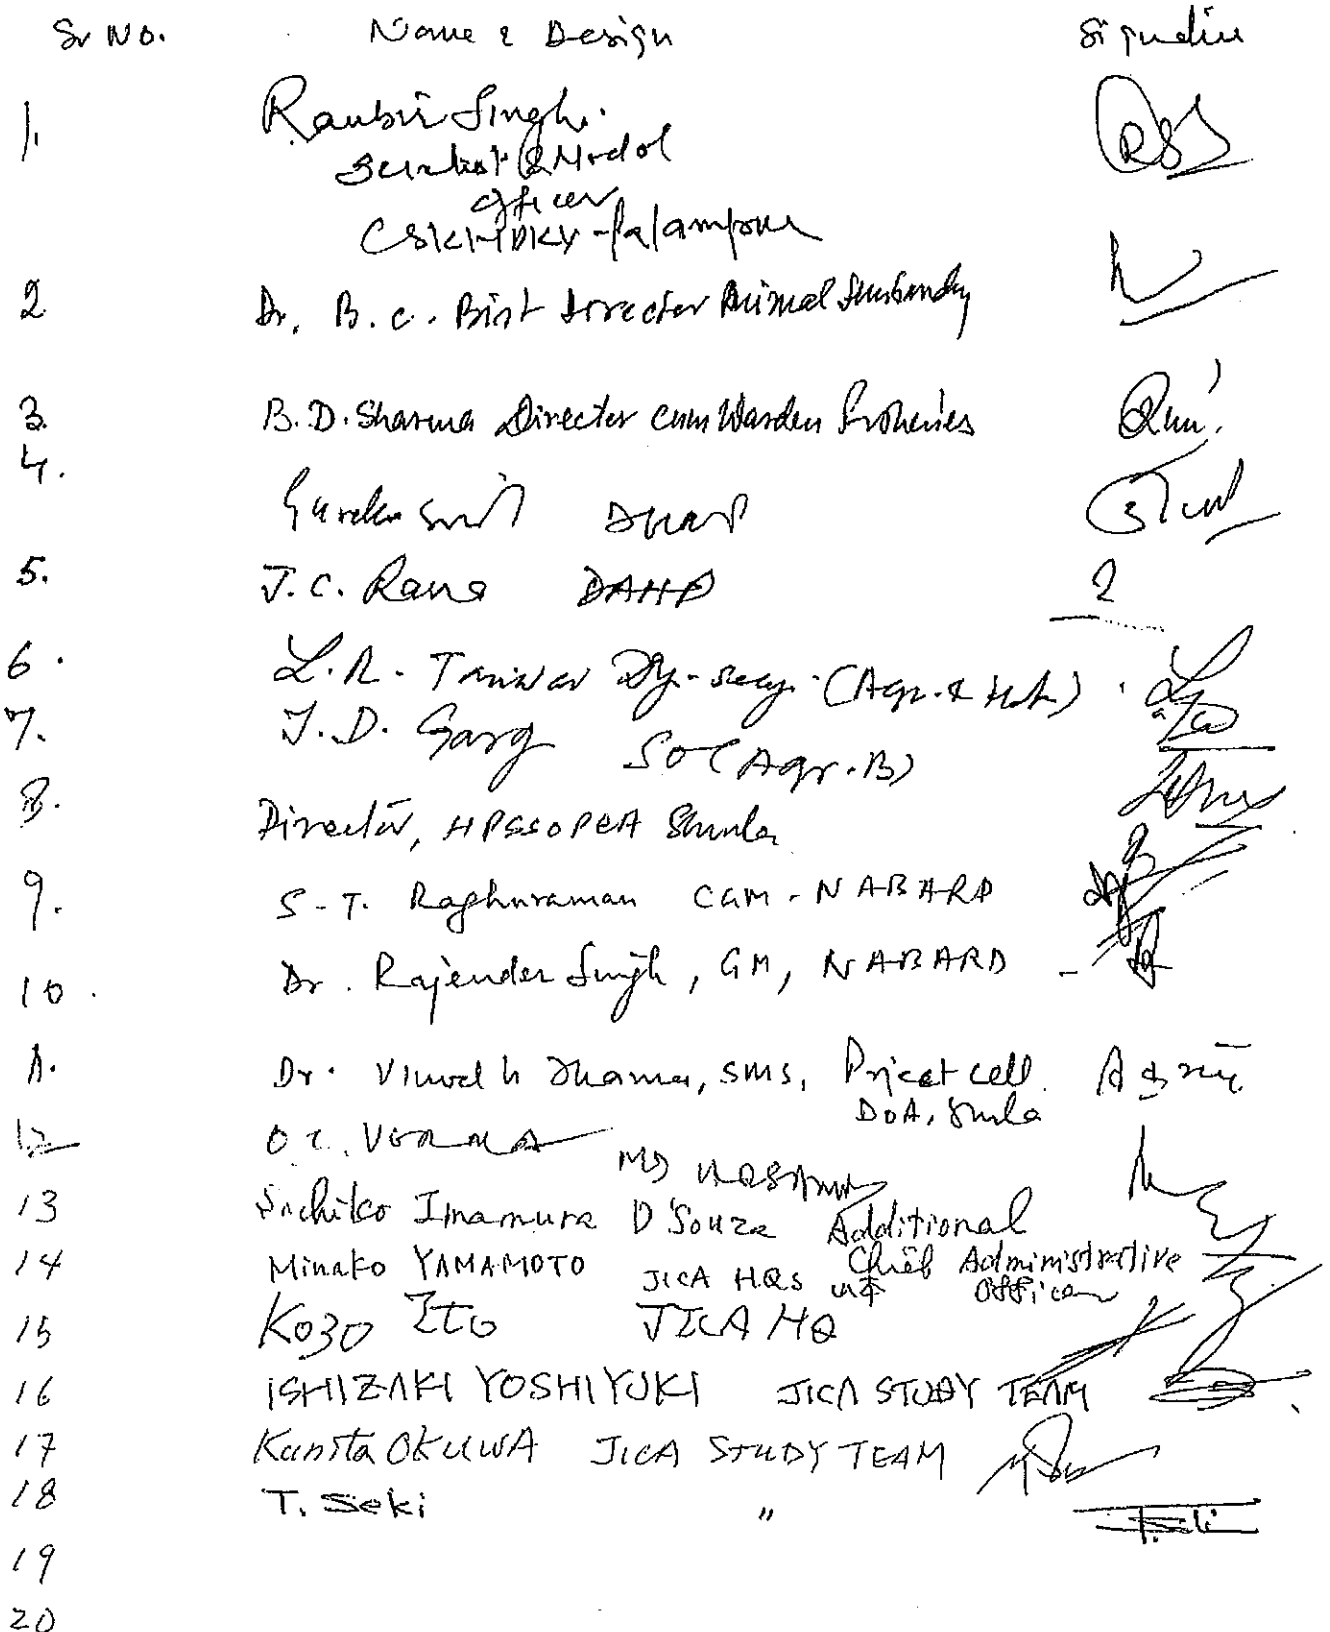 Sr No. Name & Design Signature
1. Ranbir Singh.
Scientist & Nodal
officer
CSKHPKV - Palampur
2 Dr. B.C. Bist Director Animal Husbandry
3. B.D. Sharma Director cum Warden Fisheries
4.
5. J.C. Rana DAHP
6. L.R. Tanwar Dy. Secy. (Agr. & Hort.)
7. J.D. Garg SO (Agr. B)
8. Director, HPSSOPCA Shimla
9. S.T. Raghuraman CGM - NABARD
10. Dr. Rajender Singh, GM, NABARD
11. Dr. Vinod Sharma, SMS, Project cell
DOA, Shimla
12 O.C. VERMA
MD
13 Sachiko Imamura D'Souza Additional
Chief Administrative
Officer
14 Minako YAMAMOTO JICA HQs
15 Kozo Ito JICA HQ
16 ISHIZAKI YOSHIYUKI JICA STUDY TEAM
17 Kunita OKUWA JICA STUDY TEAM
18 T. Seki " T. Seki
19
20